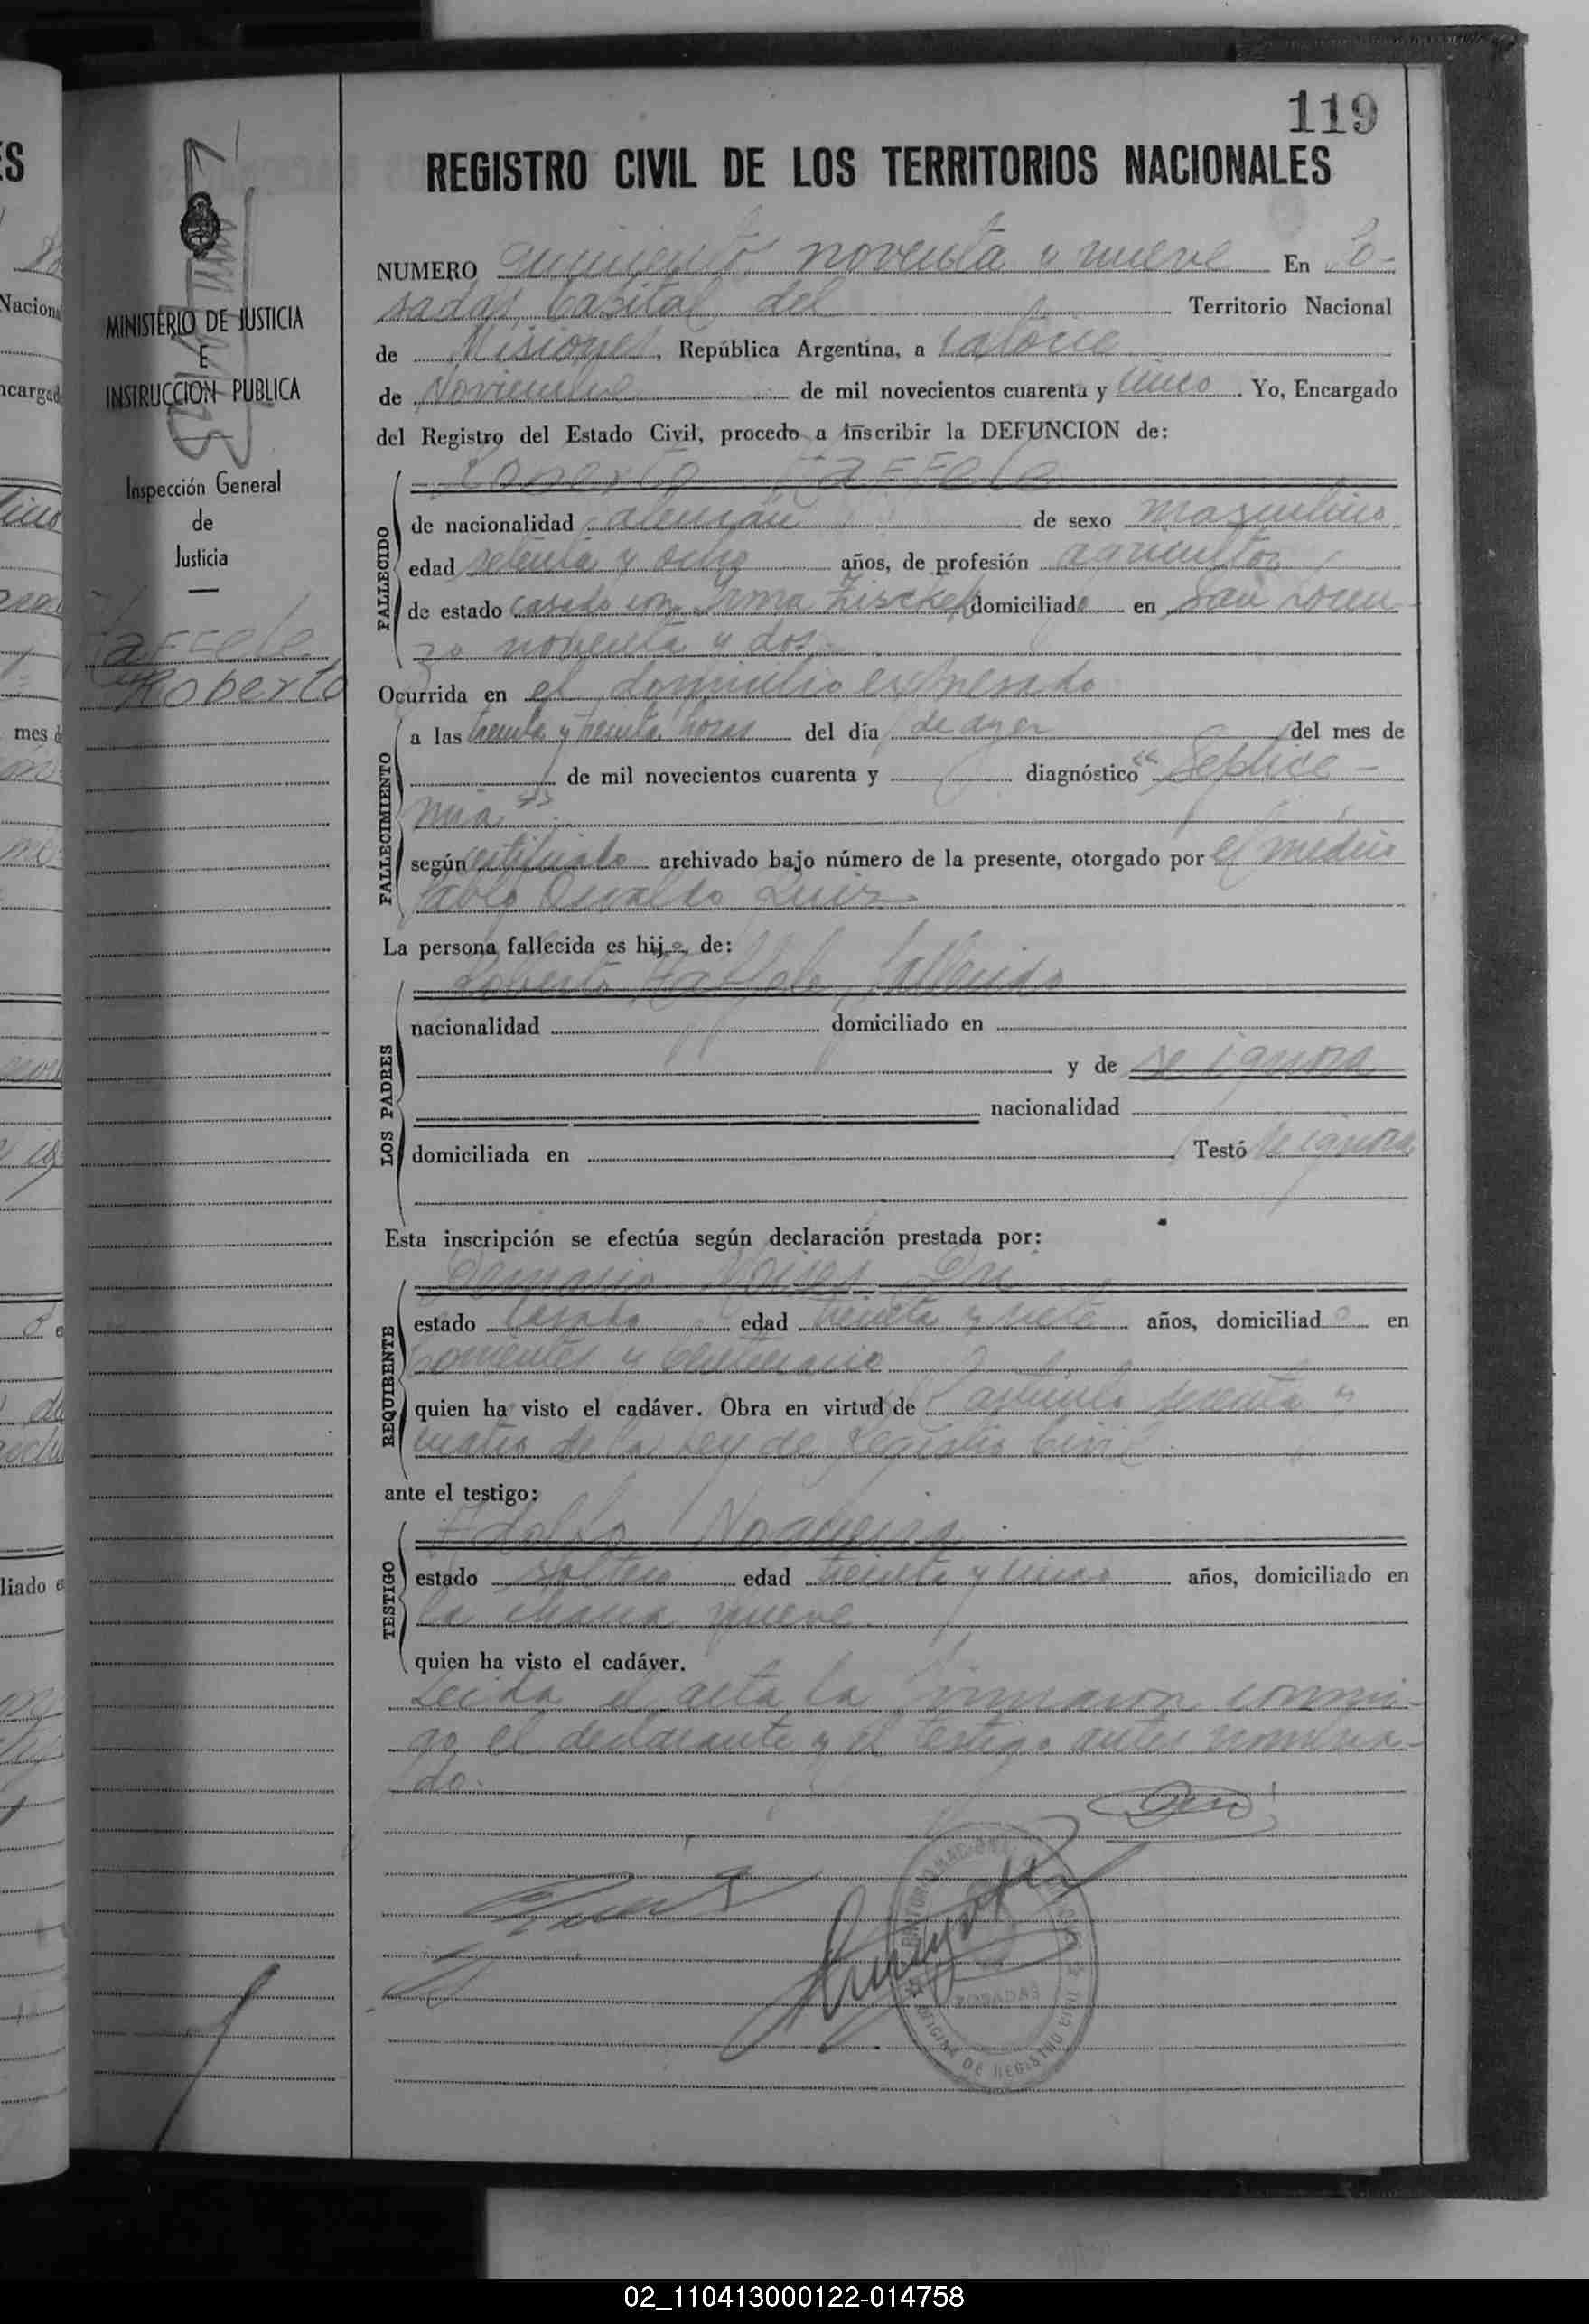 119
REGISTRO CIVIL DE LOS TERRITORIOS NACIONALES
NUMERO quinientos noventa y nueve En Po-
sadas, Capital del Territorio Nacional
de Misiones, República Argentina, a catorce
de Noviembre de mil novecientos cuarenta y cinco. Yo, Encargado
del Registro del Estado Civil, procedo a inscribir la DEFUNCION de:
Roberto Haffele
FALLECIDO
de nacionalidad alemán de sexo masculino
edad setenta y ocho años, de profesión agricultor
de estado casado con Irma domiciliado en San Loren-
zo noventa y dos.
Ocurrida en el domicilio expresado
FALLECIMIENTO
a las treinta horas del día de ayer del mes de
de mil novecientos cuarenta y diagnóstico "Septice-
mia"
según certificado archivado bajo número de la presente, otorgado por el médico
Pablo Osvaldo Luis
La persona fallecida es hijo de:
LOS PADRES
Roberto Haffele, fallecido
nacionalidad domiciliado en
y de se ignora
nacionalidad
domiciliada en Testó se ignora
Esta inscripción se efectúa según declaración prestada por:
REQUIRENTE
Moises
estado casado edad treinta y siete años, domiciliado en
Corrientes y Centenario
quien ha visto el cadáver. Obra en virtud de artículo sesenta y
cuatro de la Ley de Registro Civil.
ante el testigo:
TESTIGO
Adolfo Nogueira
estado soltero edad treinta y cinco años, domiciliado en
La Chaca nueve
quien ha visto el cadáver.
Leida el acta la firmaron conmi-
go, el declarante y el testigo antes nombra-
do.
POSADAS
OFICINA DE REGISTRO CIVIL
MINISTERIO DE JUSTICIA
E
INSTRUCCION PUBLICA
Inspección General
de
Justicia
Haffele
Roberto
02_110413000122-014758